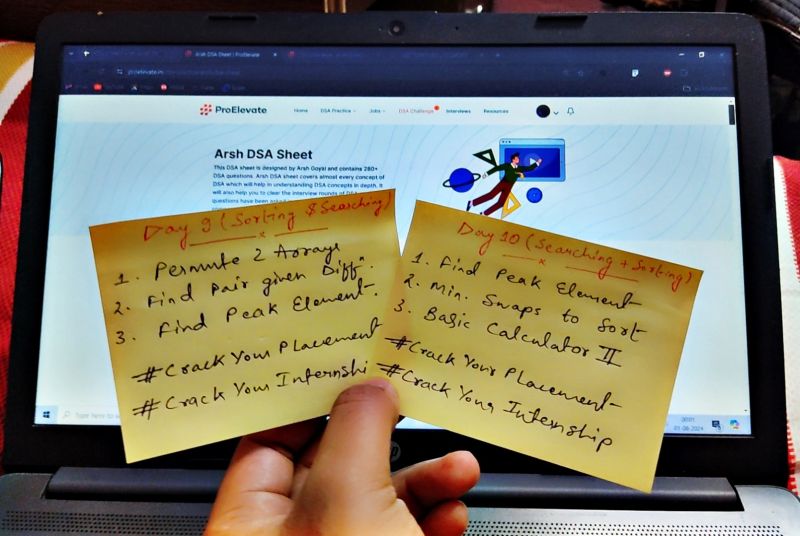 Arsh DSA Sheet | ProElevate
proelevate.in
ProElevate
Home DSA Practice Jobs DSA Challenge Interviews Resources
Arsh DSA Sheet
This DSA sheet is designed by Arsh Goyal and contains 280+
DSA questions. Arsh DSA sheet covers almost every concept of
DSA which will help in understanding DSA concepts in depth. It
will also help you to clear the interview rounds of
questions have been
Day 9 (Sorting & Searching)
1. Permute 2 Arrays
2. Find Pair given Diffn.
3. Find Peak Element.
#Crack Your Placement
#Crack Your Internshi
Day 10 (Searching + Sorting)
1. Find Peak Element
2. Min. Swaps to Sort
3. Basic Calculator II
#Crack Your Placement
#Crack Your Internship
Type here to
hp
01-08-2024